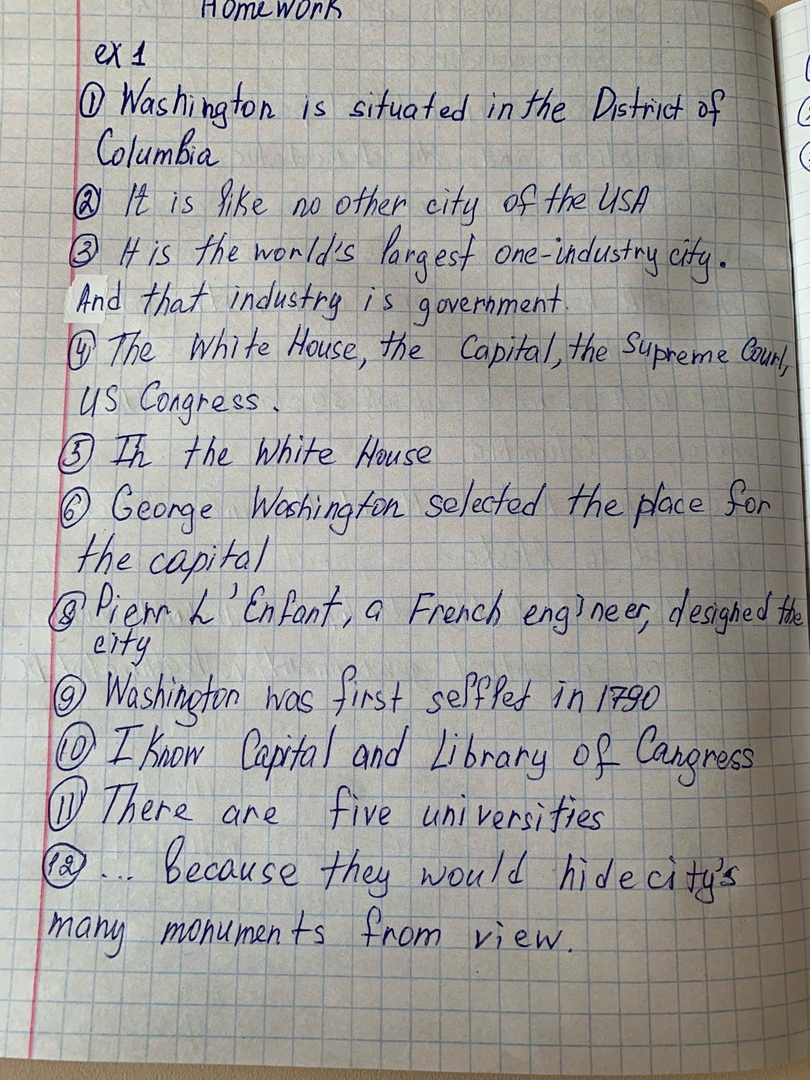 Homework
ex 1
① Washington is situated in the District of
Columbia
② It is like no other city of the USA
③ It is the world's largest one-industry city.
And that industry is government.
④ The White House, the Capital, the Supreme Court,
US Congress.
⑤ In the White House
⑥ George Washington selected the place for
the capital
⑧ Pierr L'Enfant, a French engineer, designed the
city
⑨ Washington was first settlet in 1790
⑩ I know Capital and Library of Cangress
⑪ There are five universities
⑫ ... because they would hide city's
many monuments from view.